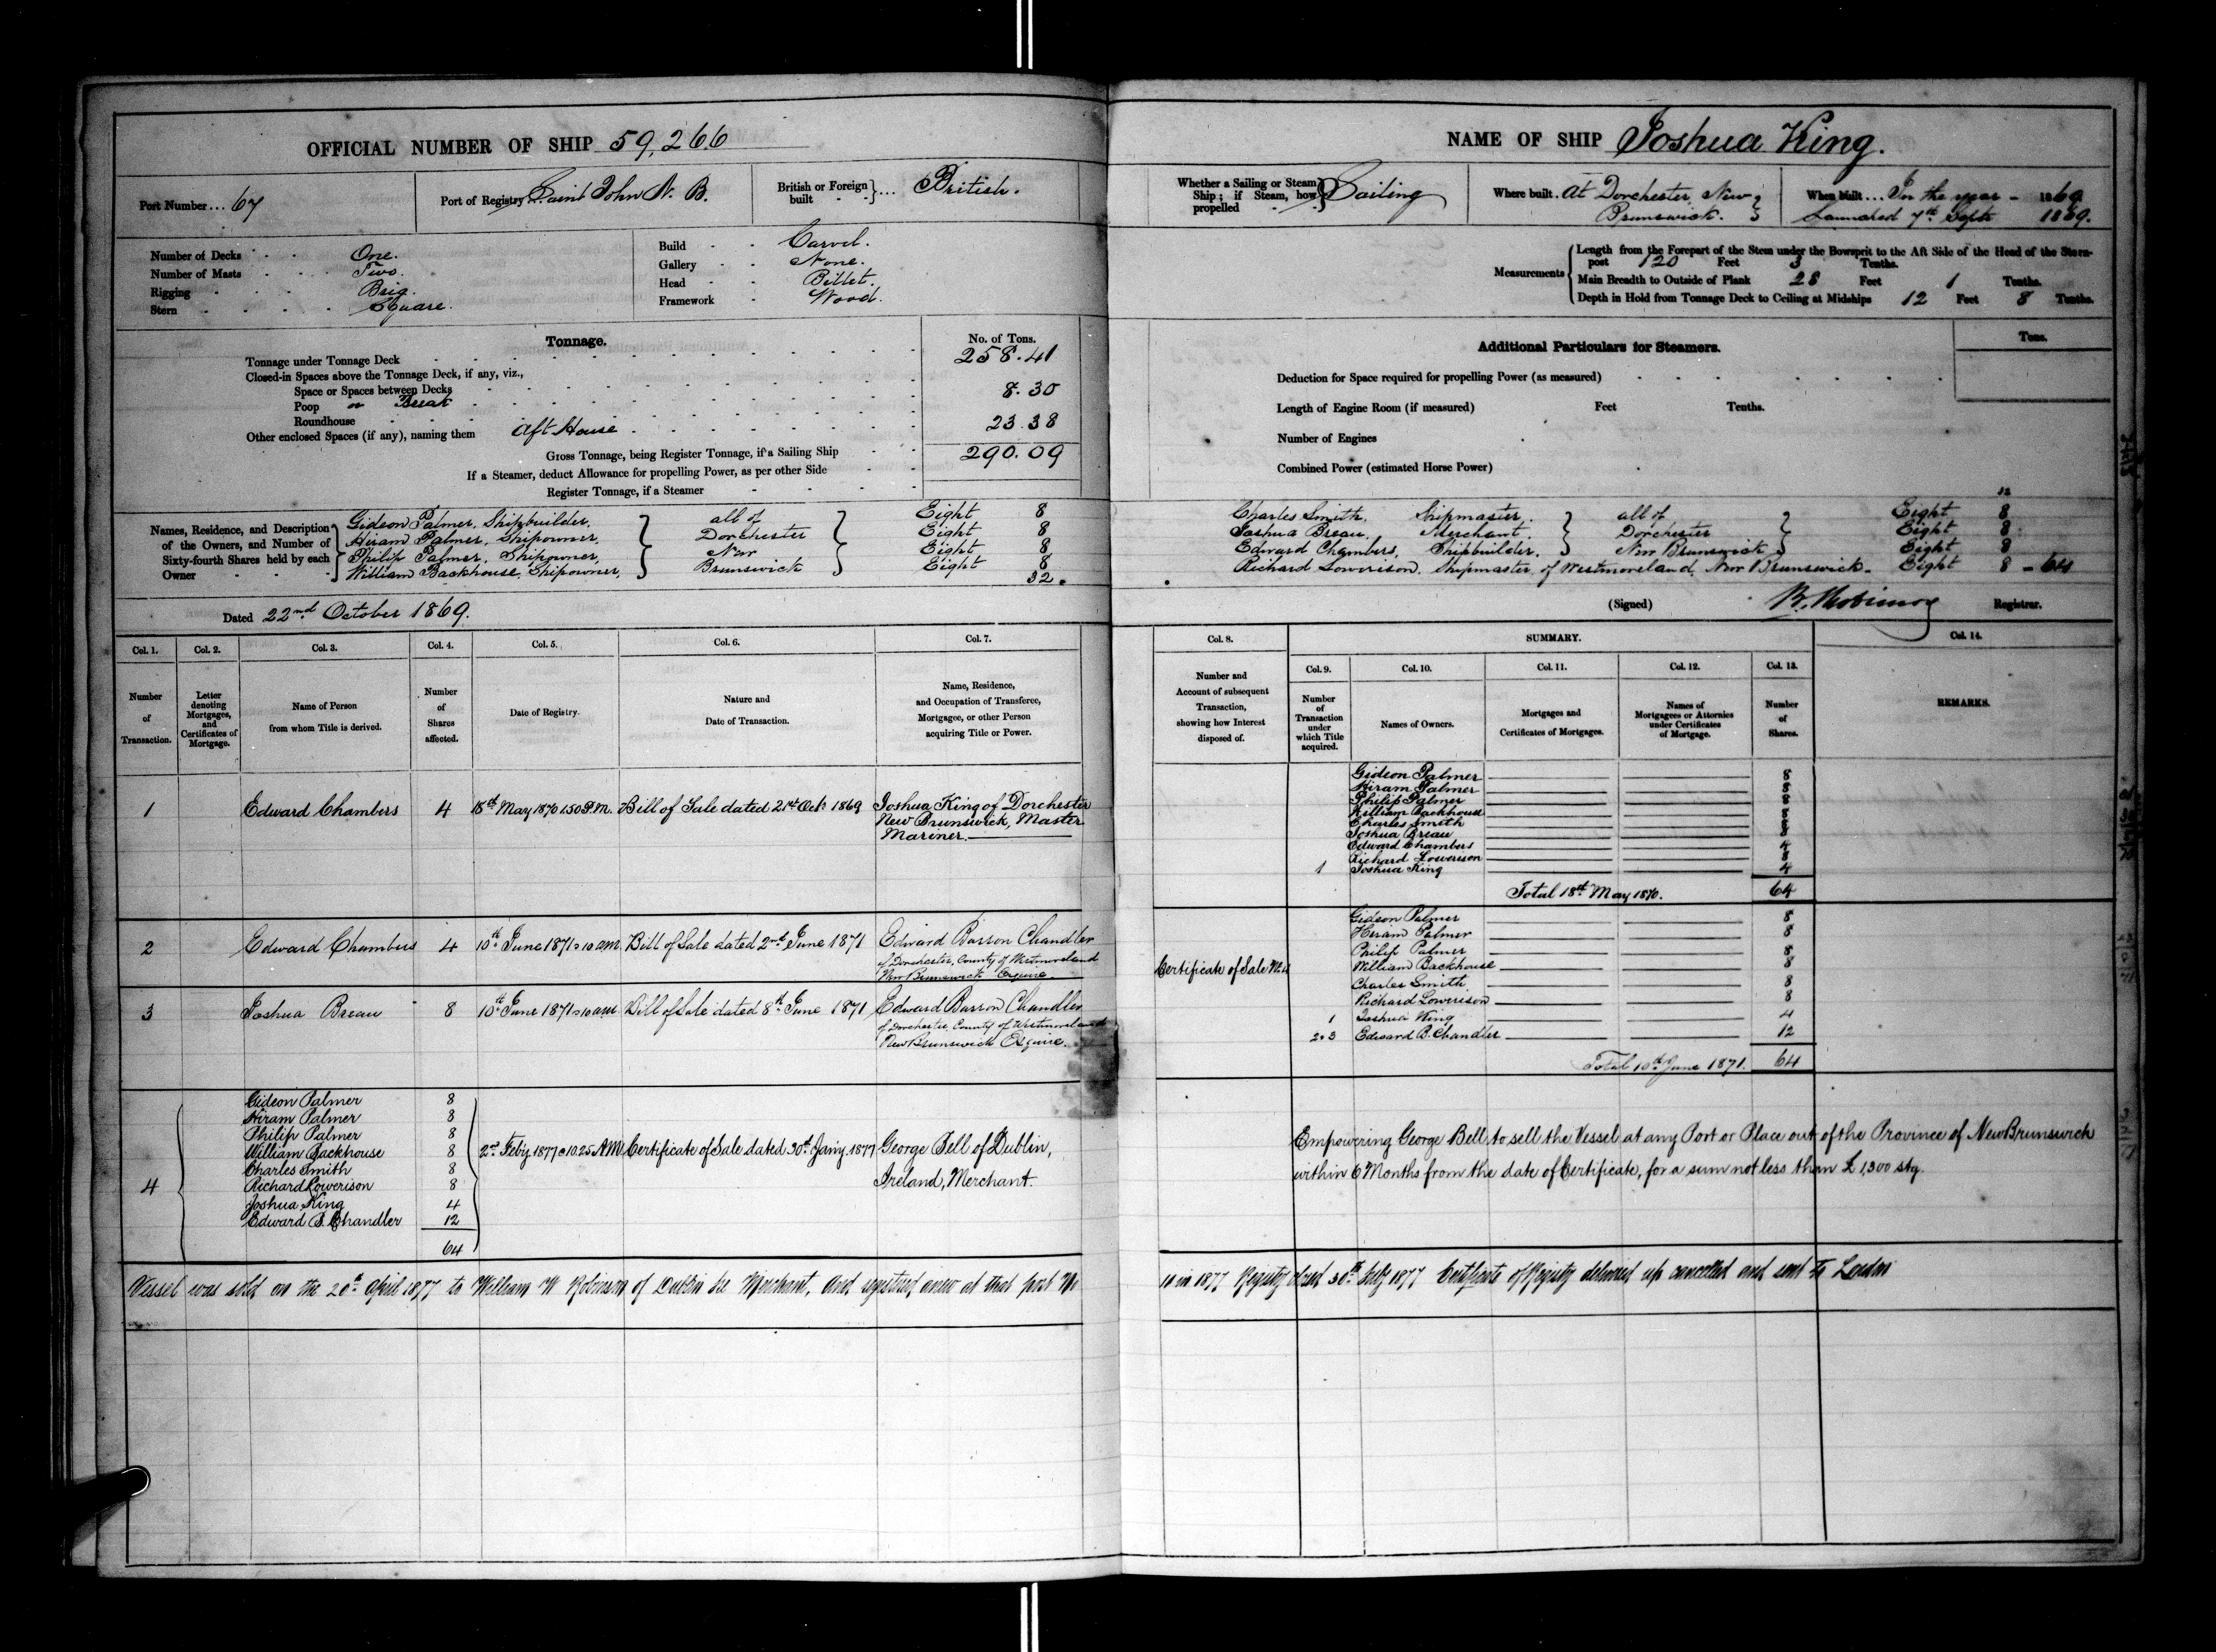 OFFICIAL NUMBER OF SHIP 59,266
Port Number... 67
Port of Registry Saint John N. B.
British or Foreign built }... British.
Number of Decks One.
Number of Masts Two.
Rigging Brig.
Stern Square.
Build Carvel.
Gallery None.
Head Billet.
Framework Wood.
Tonnage.
No. of Tons.
Tonnage under Tonnage Deck 258.41
Closed-in Spaces above the Tonnage Deck, if any, viz.,
Space or Spaces between Decks
Poop or Break 8.30
Roundhouse
Other enclosed Spaces (if any), naming them Aft House 23.38
Gross Tonnage, being Register Tonnage, if a Sailing Ship 290.09
If a Steamer, deduct Allowance for propelling Power, as per other Side
Register Tonnage, if a Steamer
Names, Residence, and Description of the Owners, and Number of Sixty-fourth Shares held by each Owner
Gideon Palmer, Shipbuilder, all of Eight 8
Hiram Palmer, Shipowner, Dorchester Eight 8
Philip Palmer, Shipowner, New Eight 8
William Backhouse, Shipowner, Brunswick Eight 8
32.
Dated 22nd October 1869.
NAME OF SHIP Joshua King.
Whether a Sailing or Steam Ship; if Steam, how propelled } Sailing
Where built. At Dorchester New Brunswick.
When built... In the year - 1869
Launched 7th Sept 1869.
Measurements
Length from the Forepart of the Stem under the Bowsprit to the Aft Side of the Head of the Stern-
post 120 Feet 3 Tenths.
Main Breadth to Outside of Plank 28 Feet 1 Tenths.
Depth in Hold from Tonnage Deck to Ceiling at Midships 12 Feet 8 Tenths.
Additional Particulars for Steamers.
Tons.
Deduction for Space required for propelling Power (as measured)
Length of Engine Room (if measured) Feet Tenths.
Number of Engines
Combined Power (estimated Horse Power)
Charles Smith, Shipmaster, all of Eight 8
Joshua Breau, Merchant, Dorchester Eight 8
Edward Chambers, Shipbuilder, New Brunswick Eight 8
Richard Lowerison, Shipmaster, of Westmoreland, New Brunswick - Eight 8 - 64
(Signed) Registrar.
Col. 1. Col. 2. Col. 3. Col. 4. Col. 5. Col. 6. Col. 7.
Number of Transaction.
Letter denoting Mortgages, and Certificates of Mortgage.
Name of Person from whom Title is derived.
Number of Shares affected.
Date of Registry.
Nature and Date of Transaction.
Name, Residence, and Occupation of Transferee, Mortgagee, or other Person acquiring Title or Power.
Col. 8. SUMMARY. Col. 14.
Col. 9. Col. 10. Col. 11. Col. 12. Col. 13.
Number and Account of subsequent Transaction, showing how Interest disposed of.
Number of Transaction under which Title acquired.
Names of Owners.
Mortgages and Certificates of Mortgages.
Names of Mortgagees or Attornies under Certificates of Mortgage.
Number of Shares.
REMARKS.
1 Edward Chambers 4 18th May 1870 1.50 P.M. Bill of Sale dated 21st Oct 1869 Joshua King of Dorchester
New Brunswick, Master
Mariner.
Gideon Palmer 8
Hiram Palmer 8
Philip Palmer 8
William Backhouse 8
Charles Smith 8
Joshua Breau 8
Edward Chambers 4
Richard Lowerison 8
1 Joshua King 4
Total 18th May 1870. 64
2 Edward Chambers 4 10th June 1871 10 am. Bill of Sale dated 2nd June 1871 Edward Barron Chandler
of Dorchester, County of Westmoreland
New Brunswick Esquire.
3 Joshua Breau 8 10th June 1871 10 am Bill of Sale dated 8th June 1871 Edward Barron Chandler
of Dorchester, County of Westmoreland
New Brunswick Esquire.
Certificate of Sale No. 4
Gideon Palmer 8
Hiram Palmer 8
Philip Palmer 8
William Backhouse 8
Charles Smith 8
Richard Lowerison 8
1 Joshua King 4
2.3 Edward B. Chandler 12
Total 10th June 1871. 64
4
Gideon Palmer 8
Hiram Palmer 8
Philip Palmer 8
William Backhouse 8
Charles Smith 8
Richard Lowerison 8
Joshua King 4
Edward B. Chandler 12
64
2nd Feby 1877 @ 10.25 A.M. Certificate of Sale dated 30th Jany. 1877 George Bell of Dublin,
Ireland, Merchant.
Empowering George Bell to sell the Vessel at any Port or Place out of the Province of New Brunswick
within 6 Months from the date of Certificate, for a sum not less than £1,300 stg.
Vessel was sold on the 20th April 1877 to William W Robinson of Dublin Ire Merchant, and registered anew at that port No
10 in 1877 Registry closed 30th July 1877 Certificate of Registry delivered up cancelled and sent to London